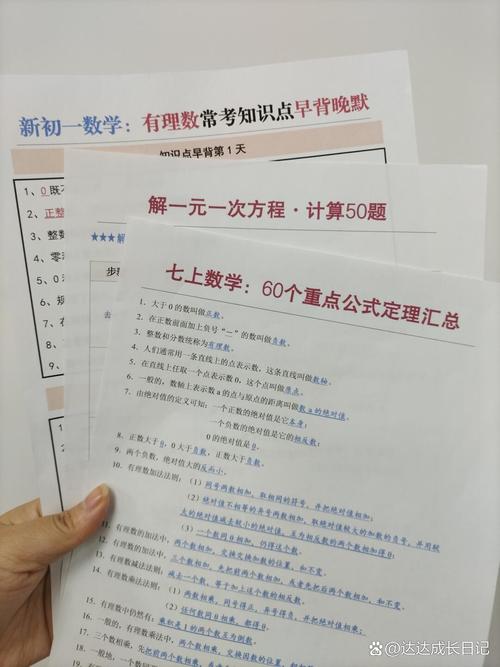 新初一数学：有理数常考知识点早背晚默
知识点早背第1天
1、0既不
2、正整
3、整数
4、零
5、0
6、规
7、在
8、
9、
解一元一次方程·计算50题
★★★解
步
去
七上数学：60个重点公式定理汇总
1. 大于0的数叫做正数。
2. 在正数前面加上负号“－”的数叫做负数。
3. 整数和分数统称为有理数。
4. 人们通常用一条直线上的点表示数，这条直线叫做数轴。
5. 在直线上任取一个点表示数0，这个点叫做原点。
6. 一般的，数轴上表示数a的点与原点的距离叫做数a的绝对值。
7. 由绝对值的定义可知：一个正数的绝对值是它本身；
一个负数的绝对值是它的相反数；
0的绝对值是0。
8. 正数大于0，0大于负数，正数大于负数。
9. 两个负数，绝对值大的反而小。
10. 有理数加法法则：（1）同号两数相加，取相同的符号，并把绝对值相加；
（2）绝对值不相等的异号两数相加，取绝对值较大的加数的负号，并用较
大的绝对值减去较小的绝对值。互为相反数的两个数相加得0；
（3）一个数同0相加，仍得这个数。
11. 有理数的加法中，两个数相加，交换交换加数的位置，和不变。
12. 有理数的加法中，三个数相加，先把前两个数相加，或者先把后两个数相加，和不变。
13. 有理数减法法则：减去一个数，等于加上这个数的相反数。
14. 有理数乘法法则：（1）两数相乘，同号得正，异号得负，并把绝对值相乘；
（2）任何数同0相乘，都得0。
15. 有理数中仍然有：乘积是1的两个数互为倒数。
16. 一般的，有理数乘法中，两个数相乘，交换因数的位置，
17. 三个数相乘，先把前两个数相乘，
18. 一般地，一个数同
19. 有理数
@达达成长日记